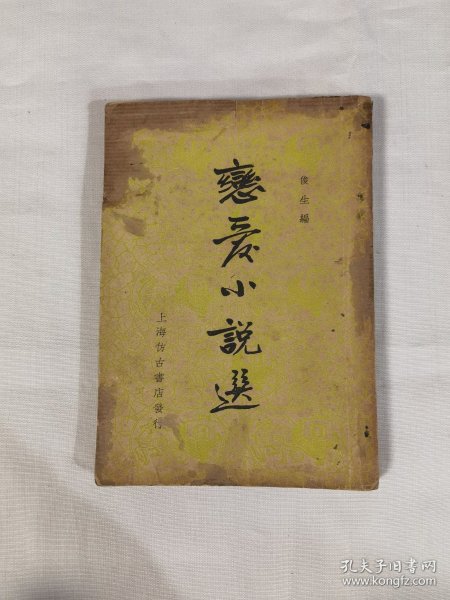 俊生編
戀愛小說選
上海仿古書店發行
孔夫子旧书网
www.kongfz.com